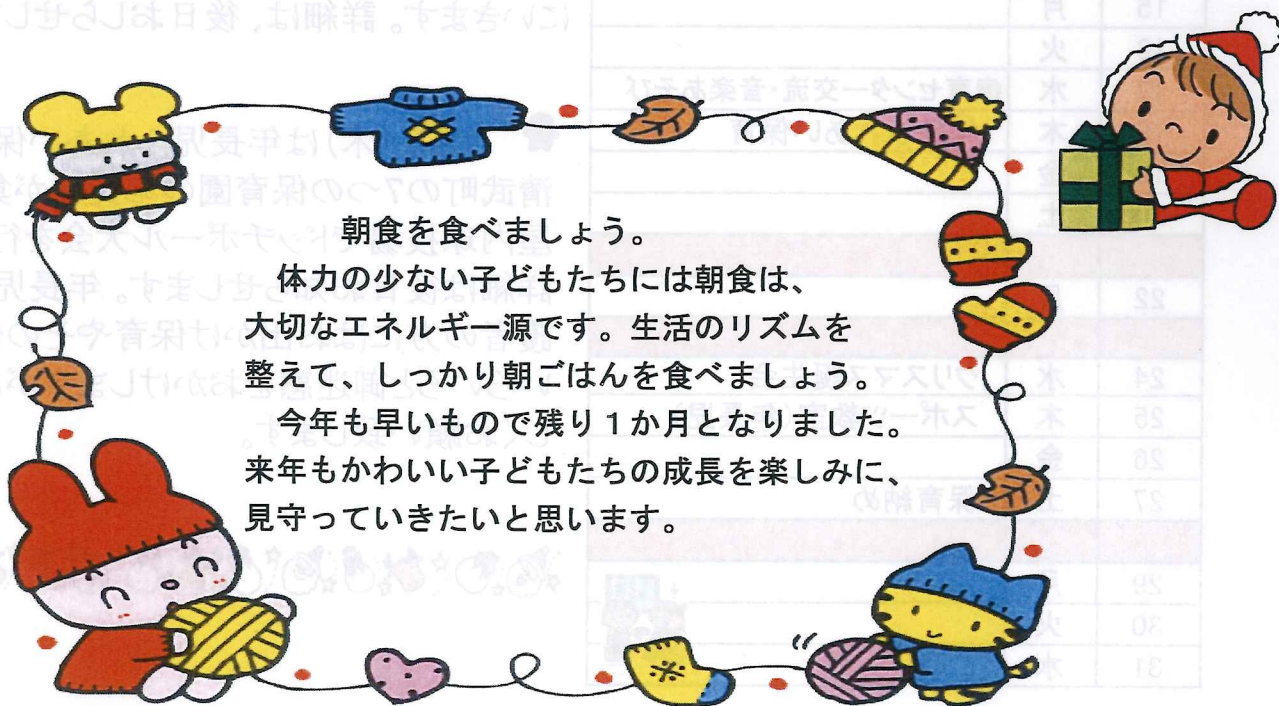 朝食を食べましょう。
体力の少ない子どもたちには朝食は、
大切なエネルギー源です。生活のリズムを
整えて、しっかり朝ごはんを食べましょう。
今年も早いもので残り１か月となりました。
来年もかわいい子どもたちの成長を楽しみに、
見守っていきたいと思います。